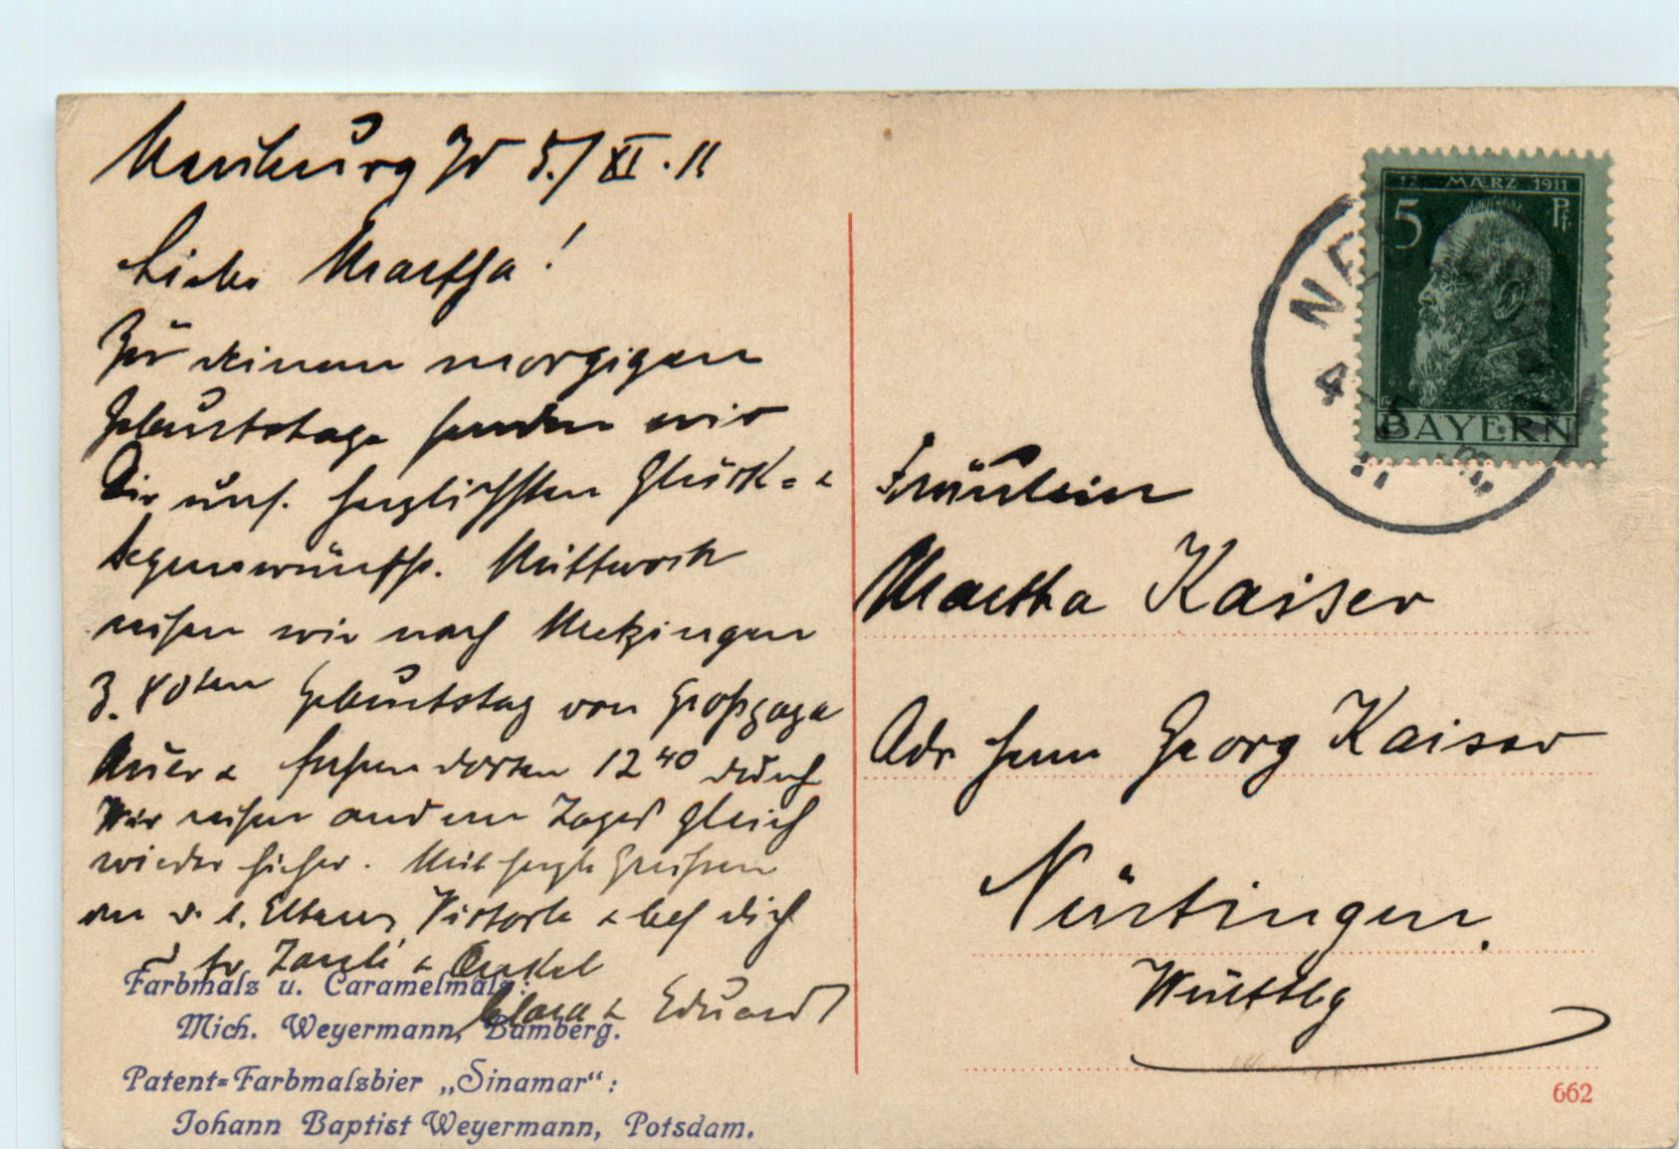 Neuburg %d 5./XI. 11
Liebe Martha!
Zu deinem morgigen
Geburtstage senden wir
Dir uns. herzlichsten Glück= &
Segenswünsche. Mittwoch
reisen wir nach Metzingen
z. 80ten Geburtstag von Großpapa
Auer & fahren dorten 12 40 durch
Wir reisen andern Tages gleich
wieder hieher. Mit herzl. Grüßen
an d. l. Eltern, Viktorle & bes. dich
Tante & Onkel
Clara & Eduard
Farbmalz u. Caramelmalz:
Mich. Weyermann, Bamberg.
Patent=Farbmalzbier „Sinamar“:
Johann Baptist Weyermann, Potsdam.
12 MÄRZ 1911
5 Pf.
BAYERN
NE
4
Fräulein
Martha Kaiser
Adr Herrn Georg Kaiser
Nürtingen.
Württbg
662